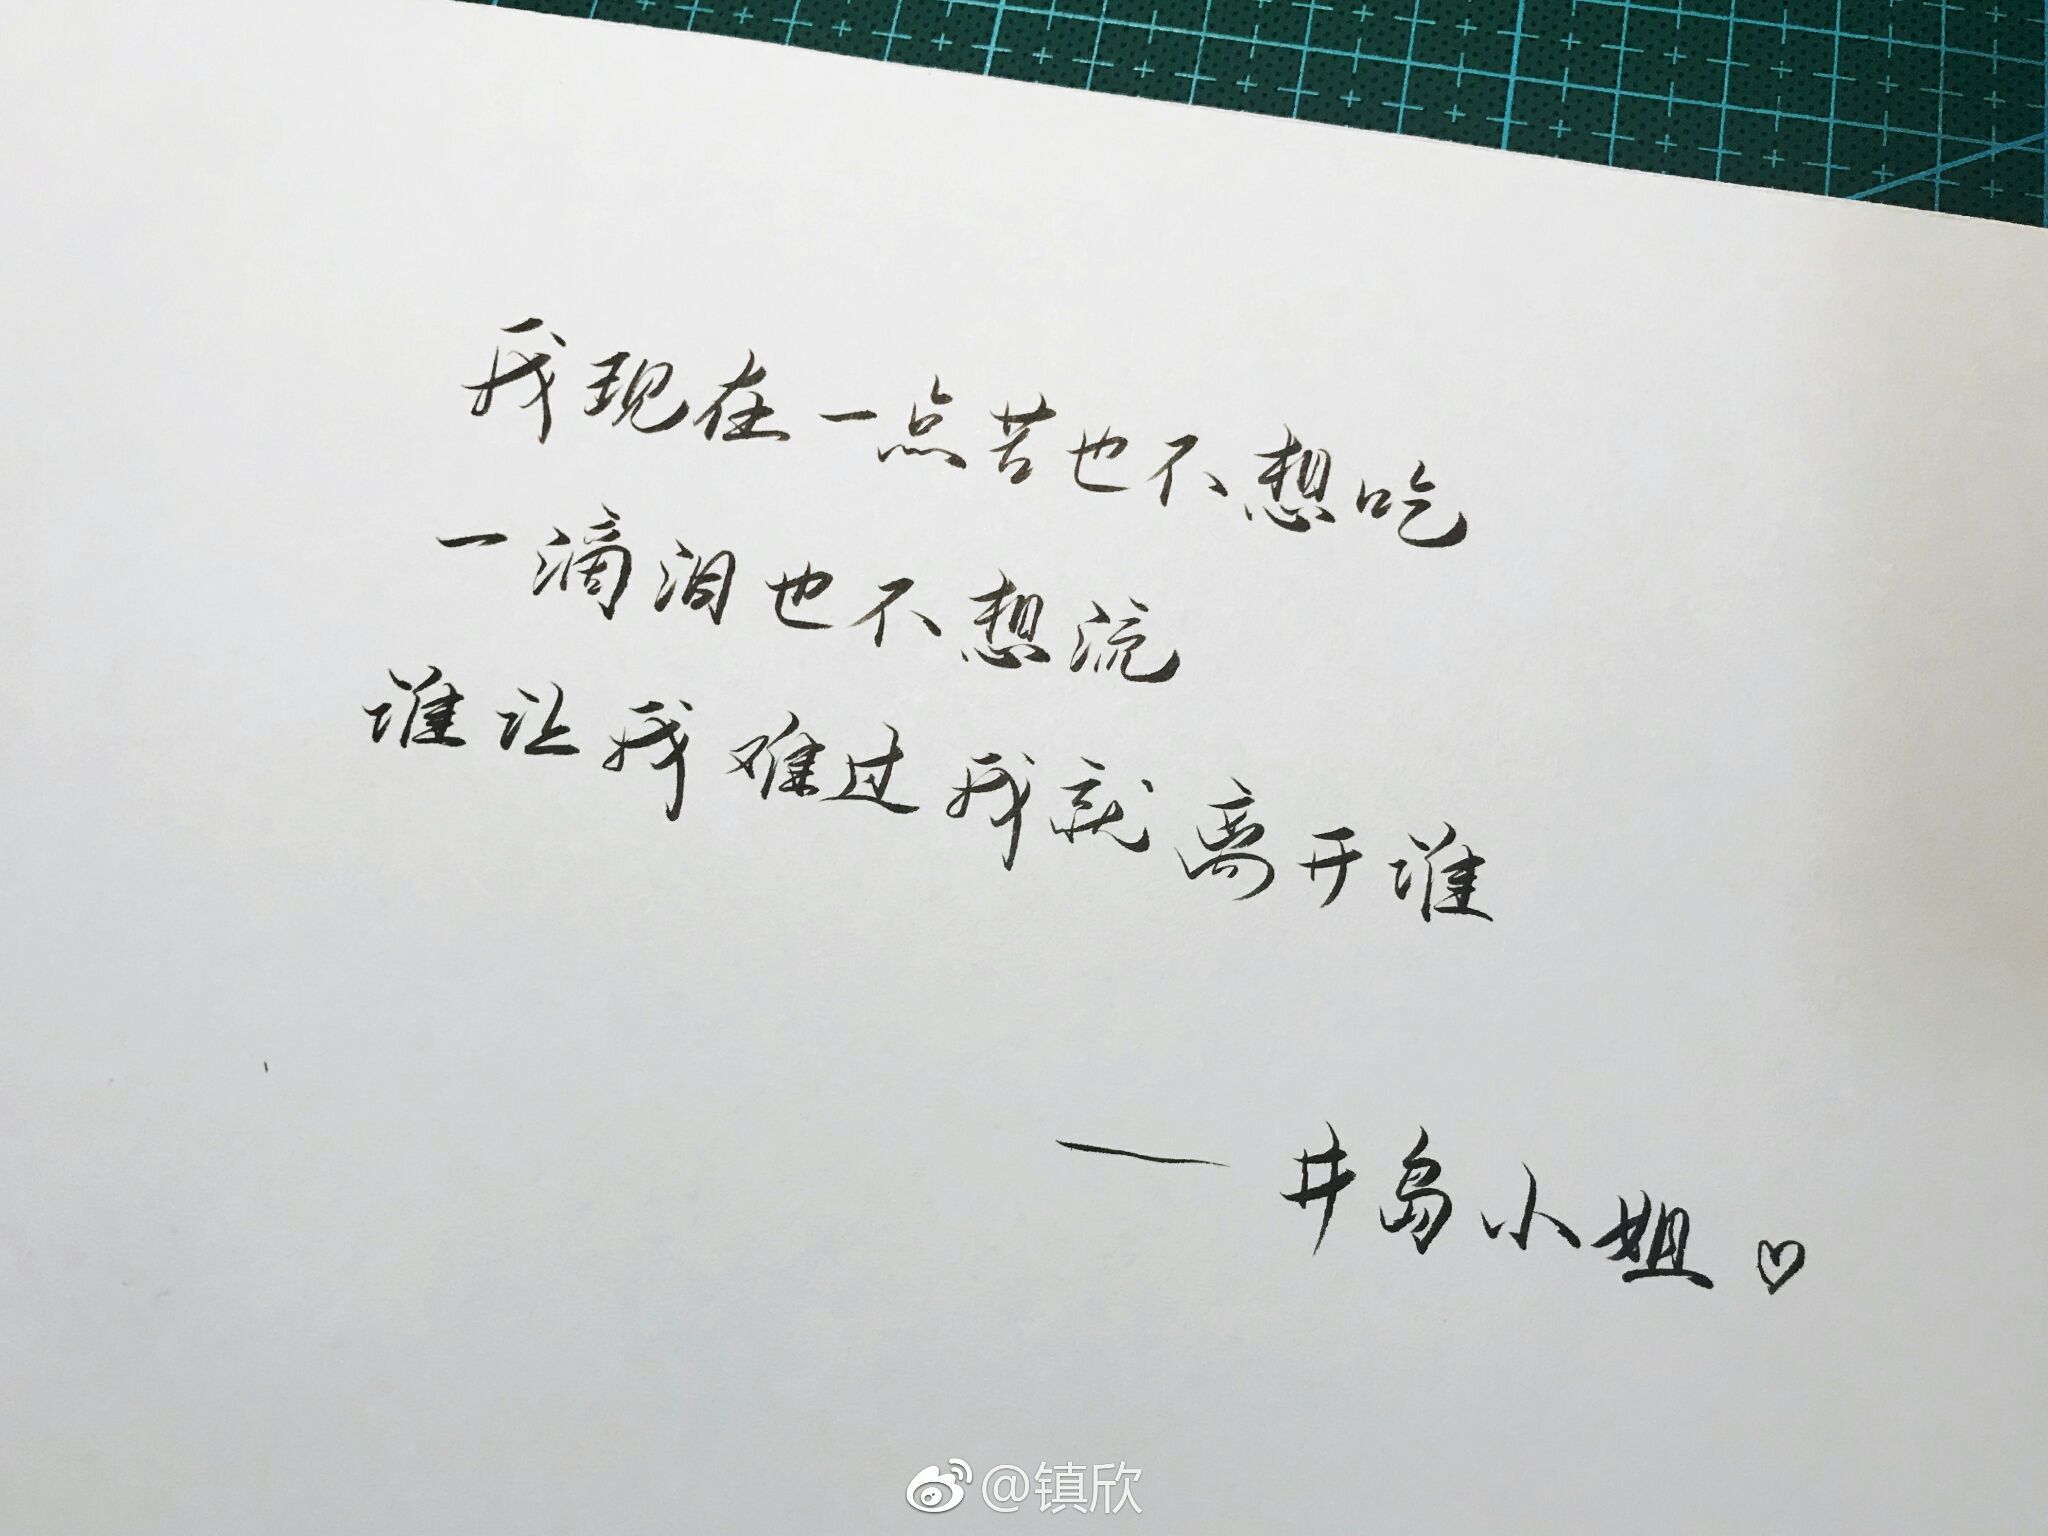 我现在一点苦也不想吃
一滴泪也不想流
谁让我难过我就离开谁
——井岛小姐♡
@镇欣